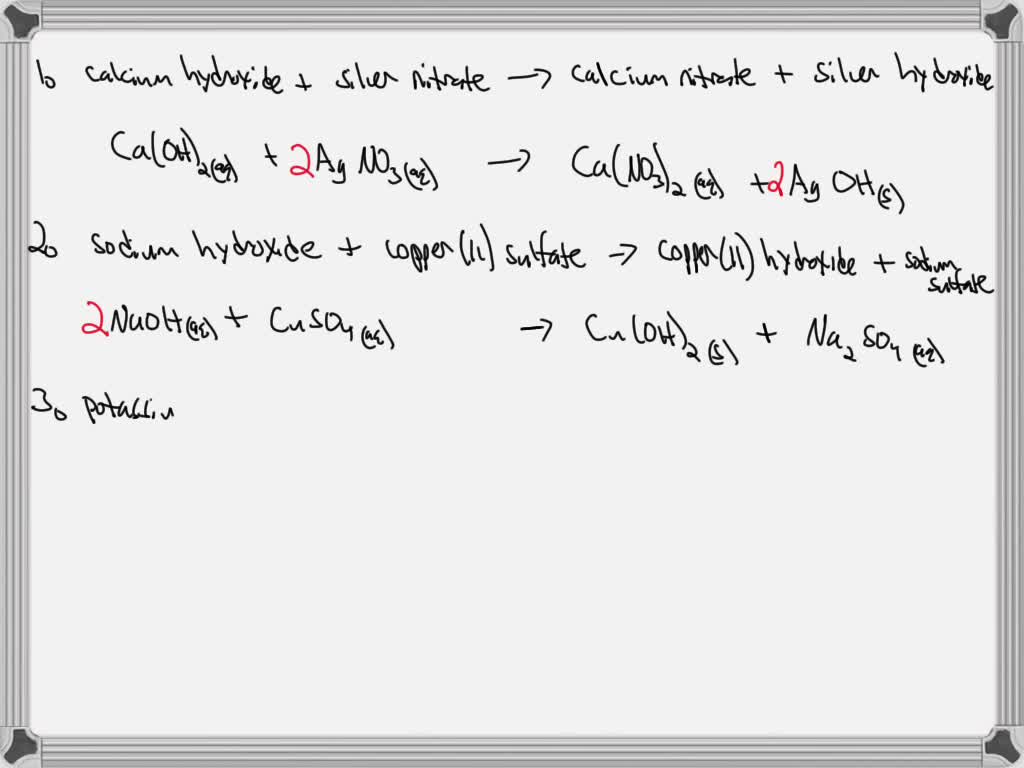 1. calcium hydroxide + silver nitrate → calcium nitrate + silver hydroxide
Ca(OH)₂(aq) + 2AgNO₃(aq) → Ca(NO₃)₂(aq) + 2AgOH(s)
2. sodium hydroxide + copper(II) sulfate → copper(II) hydroxide + sodium sulfate
2NaOH(aq) + CuSO₄(aq) → Cu(OH)₂(s) + Na₂SO₄(aq)
3. potassiu